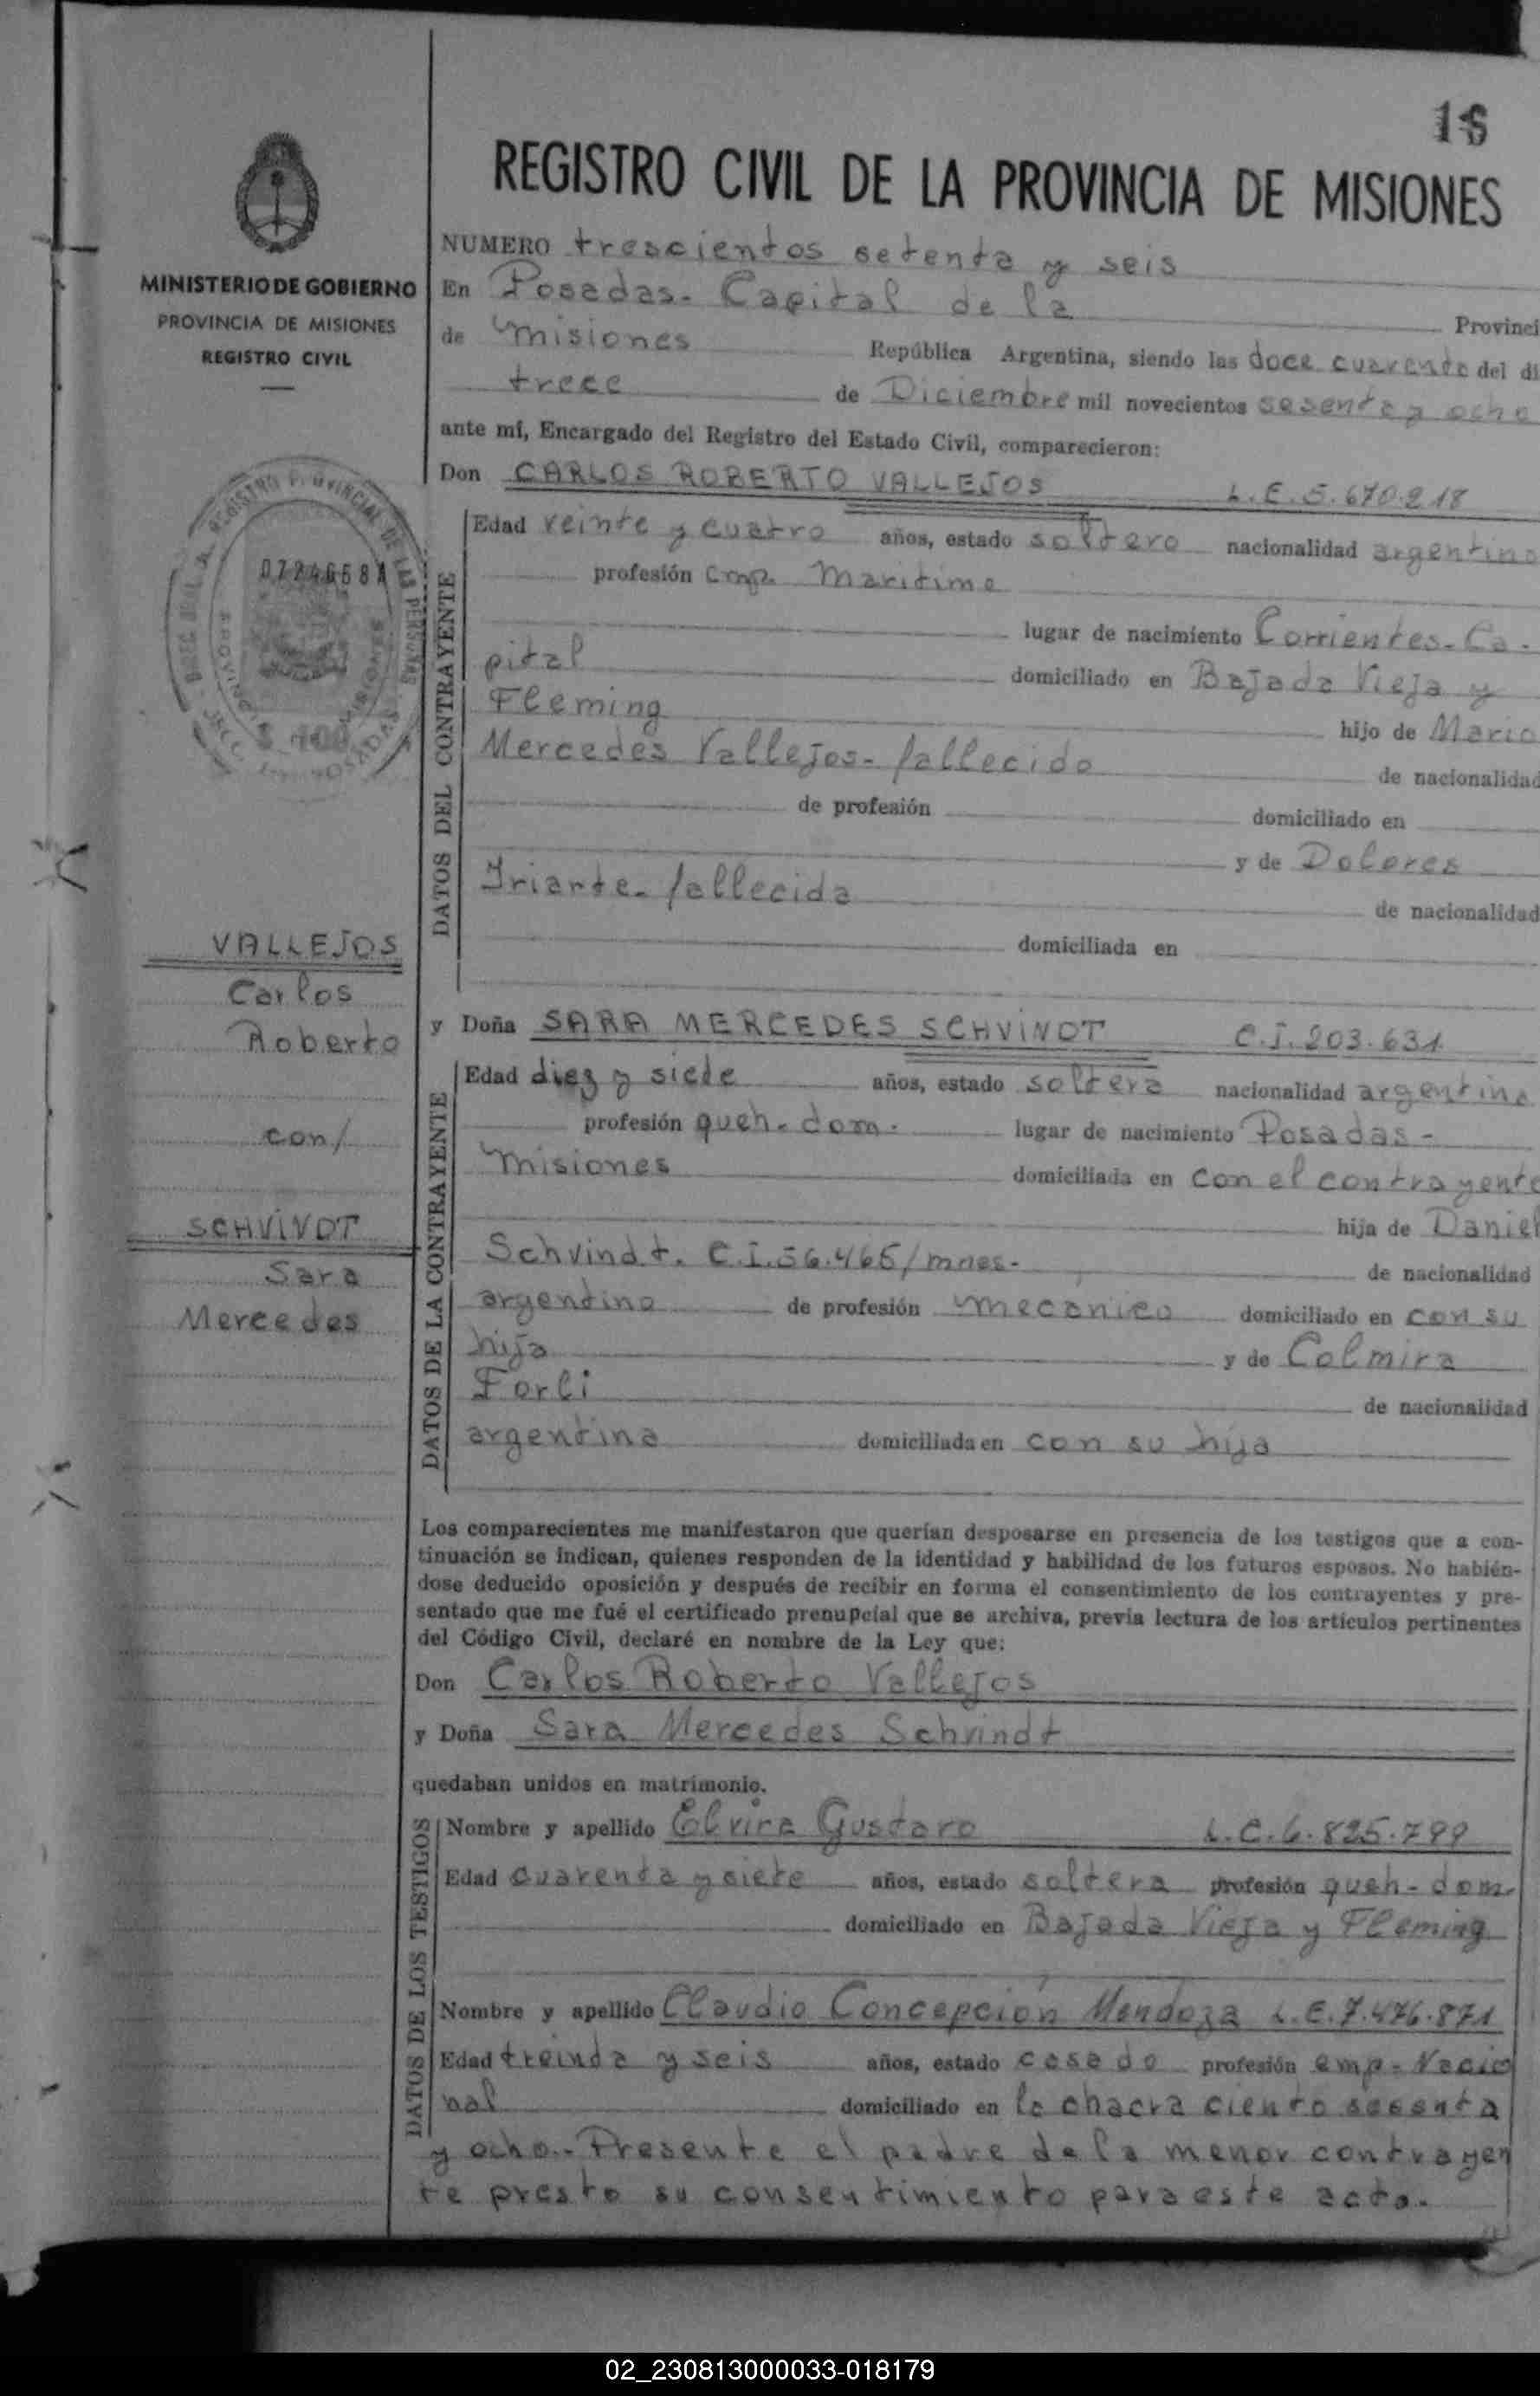 16
REGISTRO CIVIL DE LA PROVINCIA DE MISIONES
MINISTERIO DE GOBIERNO
PROVINCIA DE MISIONES
REGISTRO CIVIL
NUMERO trescientos setenta y seis
En Posadas. Capital de la Provinci
de Misiones República Argentina, siendo las doce cuarenta del dí
trece de Diciembre mil novecientos sesenta y ocho
ante mí, Encargado del Registro del Estado Civil, comparecieron:
Don CARLOS ROBERTO VALLEJOS L.E.5.670.218
0724668A
DATOS DEL CONTRAYENTE
Edad veinte y cuatro años, estado soltero nacionalidad argentino
profesión emp. Maritimo
lugar de nacimiento Corrientes-Ca-
pital domiciliado en Bajada Vieja y
Fleming hijo de Mario
Mercedes Vallejos-fallecido de nacionalidad
de profesión domiciliado en
y de Dolores
Iriarte-fallecida de nacionalidad
domiciliada en
VALLEJOS
Carlos
Roberto
con/
SCHVINDT
Sara
Mercedes
y Doña SARA MERCEDES SCHVINDT C.I.203.631
DATOS DE LA CONTRAYENTE
Edad diez y siete años, estado soltera nacionalidad argentina
profesión queh-dom. lugar de nacimiento Posadas-
Misiones domiciliada en con el contrayente
hija de Daniel
Schvindt. C.I.56.465/mnes. de nacionalidad
argentino de profesión mecanico domiciliado en con su
hija y de Colmira
Forli de nacionalidad
argentina domiciliada en con su hija
Los comparecientes me manifestaron que querían desposarse en presencia de los testigos que a con-
tinuación se indican, quienes responden de la identidad y habilidad de los futuros esposos. No habién-
dose deducido oposición y después de recibir en forma el consentimiento de los contrayentes y pre-
sentado que me fué el certificado prenupcial que se archiva, previa lectura de los artículos pertinentes
del Código Civil, declaré en nombre de la Ley que:
Don Carlos Roberto Vallejos
y Doña Sara Mercedes Schvindt
quedaban unidos en matrimonio.
DATOS DE LOS TESTIGOS
Nombre y apellido Elvira Gustavo L.C.6.825.799
Edad cuarenta y siete años, estado soltera profesión queh-dom.
domiciliado en Bajada Vieja y Fleming
Nombre y apellido Claudio Concepción Mendoza L.E.7.476.871
Edad treinta y seis años, estado casado profesión emp-Nacio
nal domiciliado en la chacra ciento sesenta
y ocho.-Presente el padre de la menor contrayen
te presto su consentimiento para este acto.
02_230813000033-018179